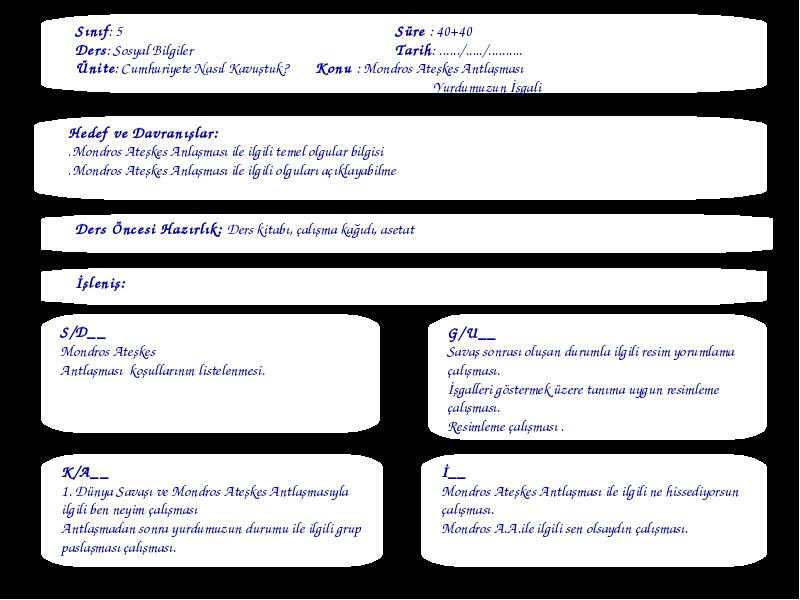 Sınıf: 5 Süre : 40+40
Ders: Sosyal Bilgiler Tarih: ....../...../..........
Ünite: Cumhuriyete Nasıl Kavuştuk? Konu : Mondros Ateşkes Antlaşması
Yurdumuzun İşgali
Hedef ve Davranışlar:
.Mondros Ateşkes Anlaşması ile ilgili temel olgular bilgisi
.Mondros Ateşkes Anlaşması ile ilgili olguları açıklayabilme
Ders Öncesi Hazırlık: Ders kitabı, çalışma kağıdı, asetat
İşleniş:
S/D__
Mondros Ateşkes
Antlaşması koşullarının listelenmesi.
G/U__
Savaş sonrası oluşan durumla ilgili resim yorumlama
çalışması.
İşgalleri göstermek üzere tanıma uygun resimleme
çalışması.
Resimleme çalışması .
K/A__
1. Dünya Savaşı ve Mondros Ateşkes Antlaşmasıyla
ilgili ben neyim çalışması
Antlaşmadan sonra yurdumuzun durumu ile ilgili grup
paslaşması çalışması.
İ__
Mondros Ateşkes Antlaşması ile ilgili ne hissediyorsun
çalışması.
Mondros A.A.ile ilgili sen olsaydın çalışması.